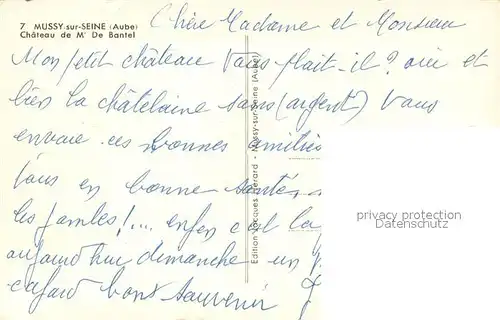 7 MUSSY-sur-SEINE (Aube)
Château de Mr De Bantel
Chère Madame et Monsieur
Mon petit château Vous plait-il? oui et
bien la châtelaine sans (argent) Vous
envoie ces bonnes amitiés
tous en bonne santé
les jambes!... enfin c'est la
aujourd'hui dimanche un
cafard bons souvenir
Edition Jacques Gérard - Mussy-sur-Seine (Aube)
privacy protection
Datenschutz